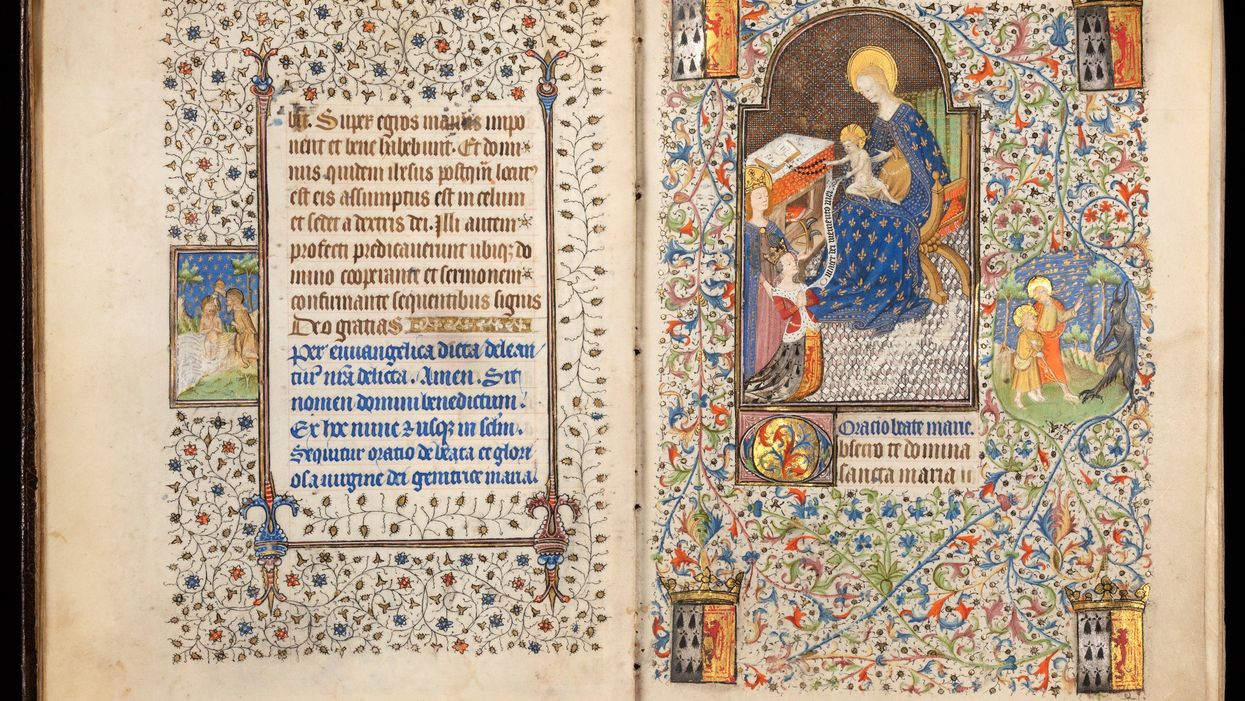 bit. Super egros manus impo
nent et bene habebunt. Et domi
nus quidem ihesus postq̃m locutꝰ
est eis assumptus est in celum
et sedet a dextris dei. Illi autem
profecti predicauerunt ubiqꝫ do
mino cooperante et sermonem
confirmante sequentibus signis
Deo gratias
Per euuangelica dicta delean
tur nr̃a delicta. Amen. Sit
nomen domini benedictum.
Ex hoc nunc ⁊ usqꝫ in sclm̃.
Sequitur oratio de beata et glori
osa uirgine dei genitrice maria.
mater dei memento mei
Oratio beate marie.
Obsecro te domina
sancta maria